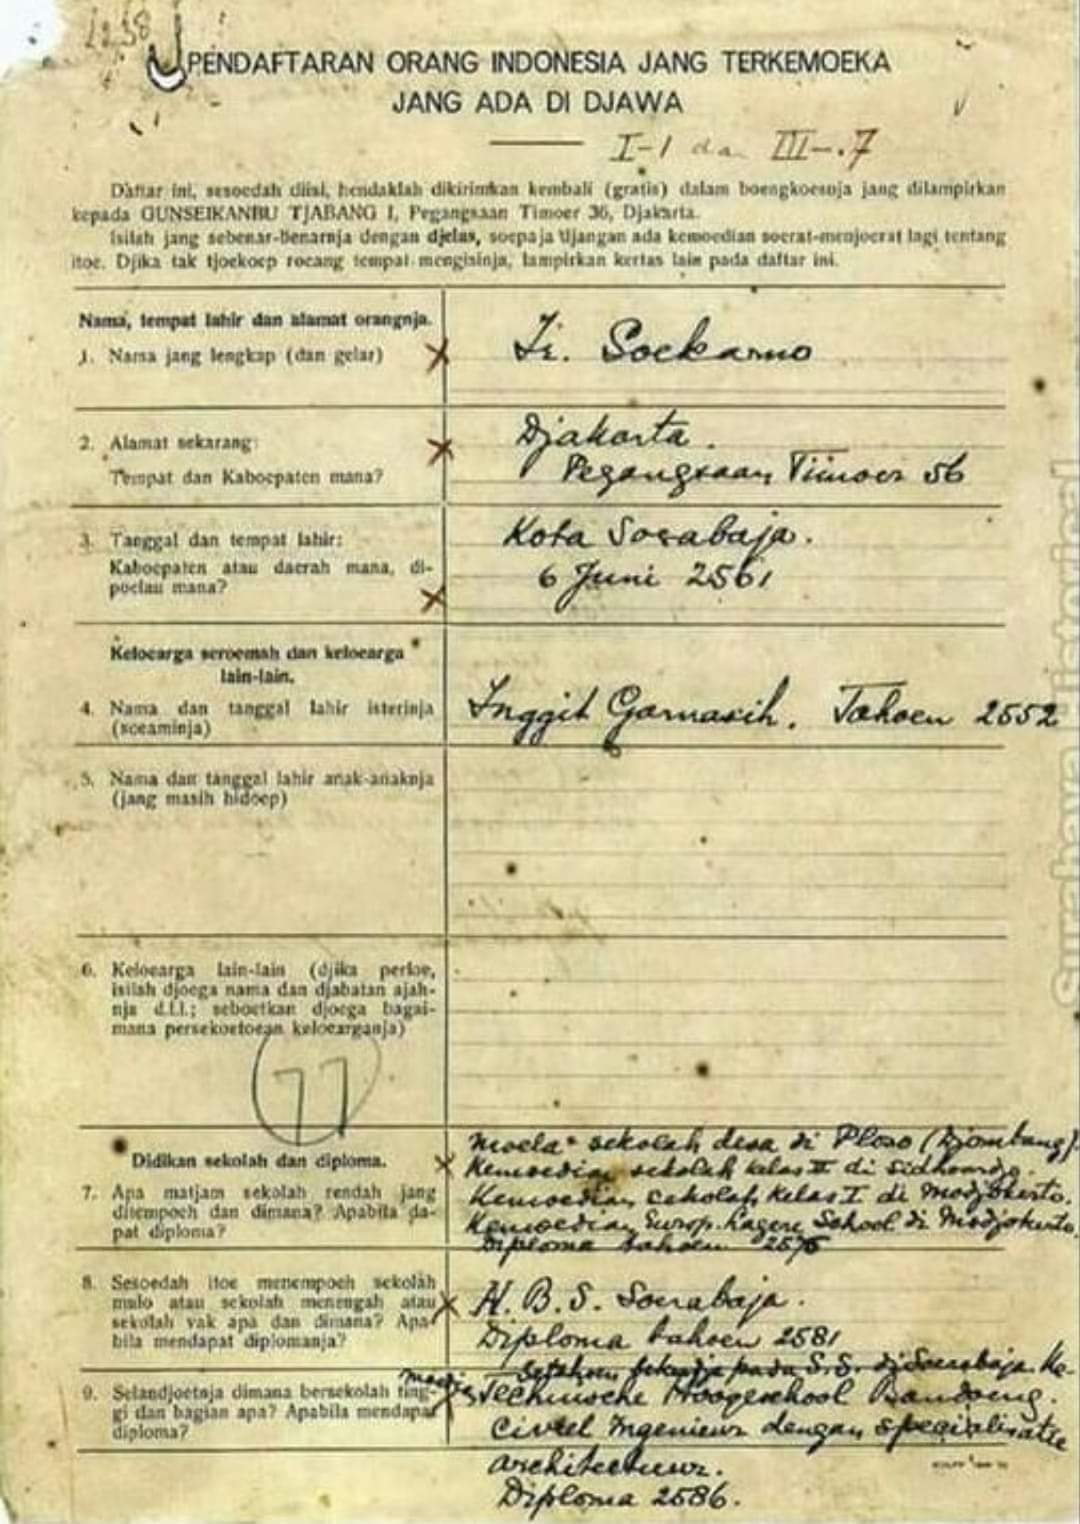 1238
PENDAFTARAN ORANG INDONESIA JANG TERKEMOEKA
JANG ADA DI DJAWA
I-1 dan III-.7
Daftar ini, sesoedah diisi, hendaklah dikirimkan kembali (gratis) dalam boengkoesnja jang dilampirkan
kepada GUNSEIKANBU TJABANG I, Pegangsaan Timoer 36, Djakarta.
Isilah jang sebenar-benarnja dengan djelas, soepaja djangan ada kemoedian soerat-menjoerat lagi tentang
itoe. Djika tak tjoekoep roeang tempat mengisinja, lampirkan kertas lain pada daftar ini.
Nama, tempat lahir dan alamat orangnja.
1. Nama jang lengkap (dan gelar)
Ir. Soekarno
2. Alamat sekarang:
Tempat dan Kaboepaten mana?
Djakarta.
Pegangsaan Timoer 56
3. Tanggal dan tempat lahir:
Kaboepaten atau daerah mana, di-
poelau mana?
Kota Soerabaja.
6 Juni 2561
Keloearga seroemah dan keloearga
lain-lain.
4. Nama dan tanggal lahir isterinja
(soeaminja)
Inggit Garnasih. Tahoen 2552
5. Nama dan tanggal lahir anak-anaknja
(jang masih hidoep)
6. Keloearga lain-lain (djika perloe,
isilah djoega nama dan djabatan ajah-
nja d.l.l.; seboetkan djoega bagai-
mana persekoetoean keloearganja)
77
Didikan sekolah dan diploma.
7. Apa matjam sekolah rendah jang
ditempoeh dan dimana? Apabila da-
pat diploma?
Moela² sekolah desa di Ploso (Djombang).
Kemoedian sekolah kelas II di Sidhoardjo.
Kemoedian sekolah kelas I di Modjokerto.
Kemoedian Europ. Lagere School di Modjokerto.
Diploma tahoen
8. Sesoedah itoe menempoeh sekolah
mulo atau sekolah menengah atau
sekolah vak apa dan dimana? Apa-
bila mendapat diplomanja?
H. B. S. Soerabaja.
Diploma tahoen 2581
Setahoen bekerdja pada S.S. di Soerabaja. Ke-
9. Selandjoetnja dimana bersekolah ting-
gi dan bagian apa? Apabila mendapat
diploma?
Technische Hoogeschool Bandoeng.
Civiel Ingenieur dengan specialisatie
architectuur.
Diploma 2586.
Surabaya Historical